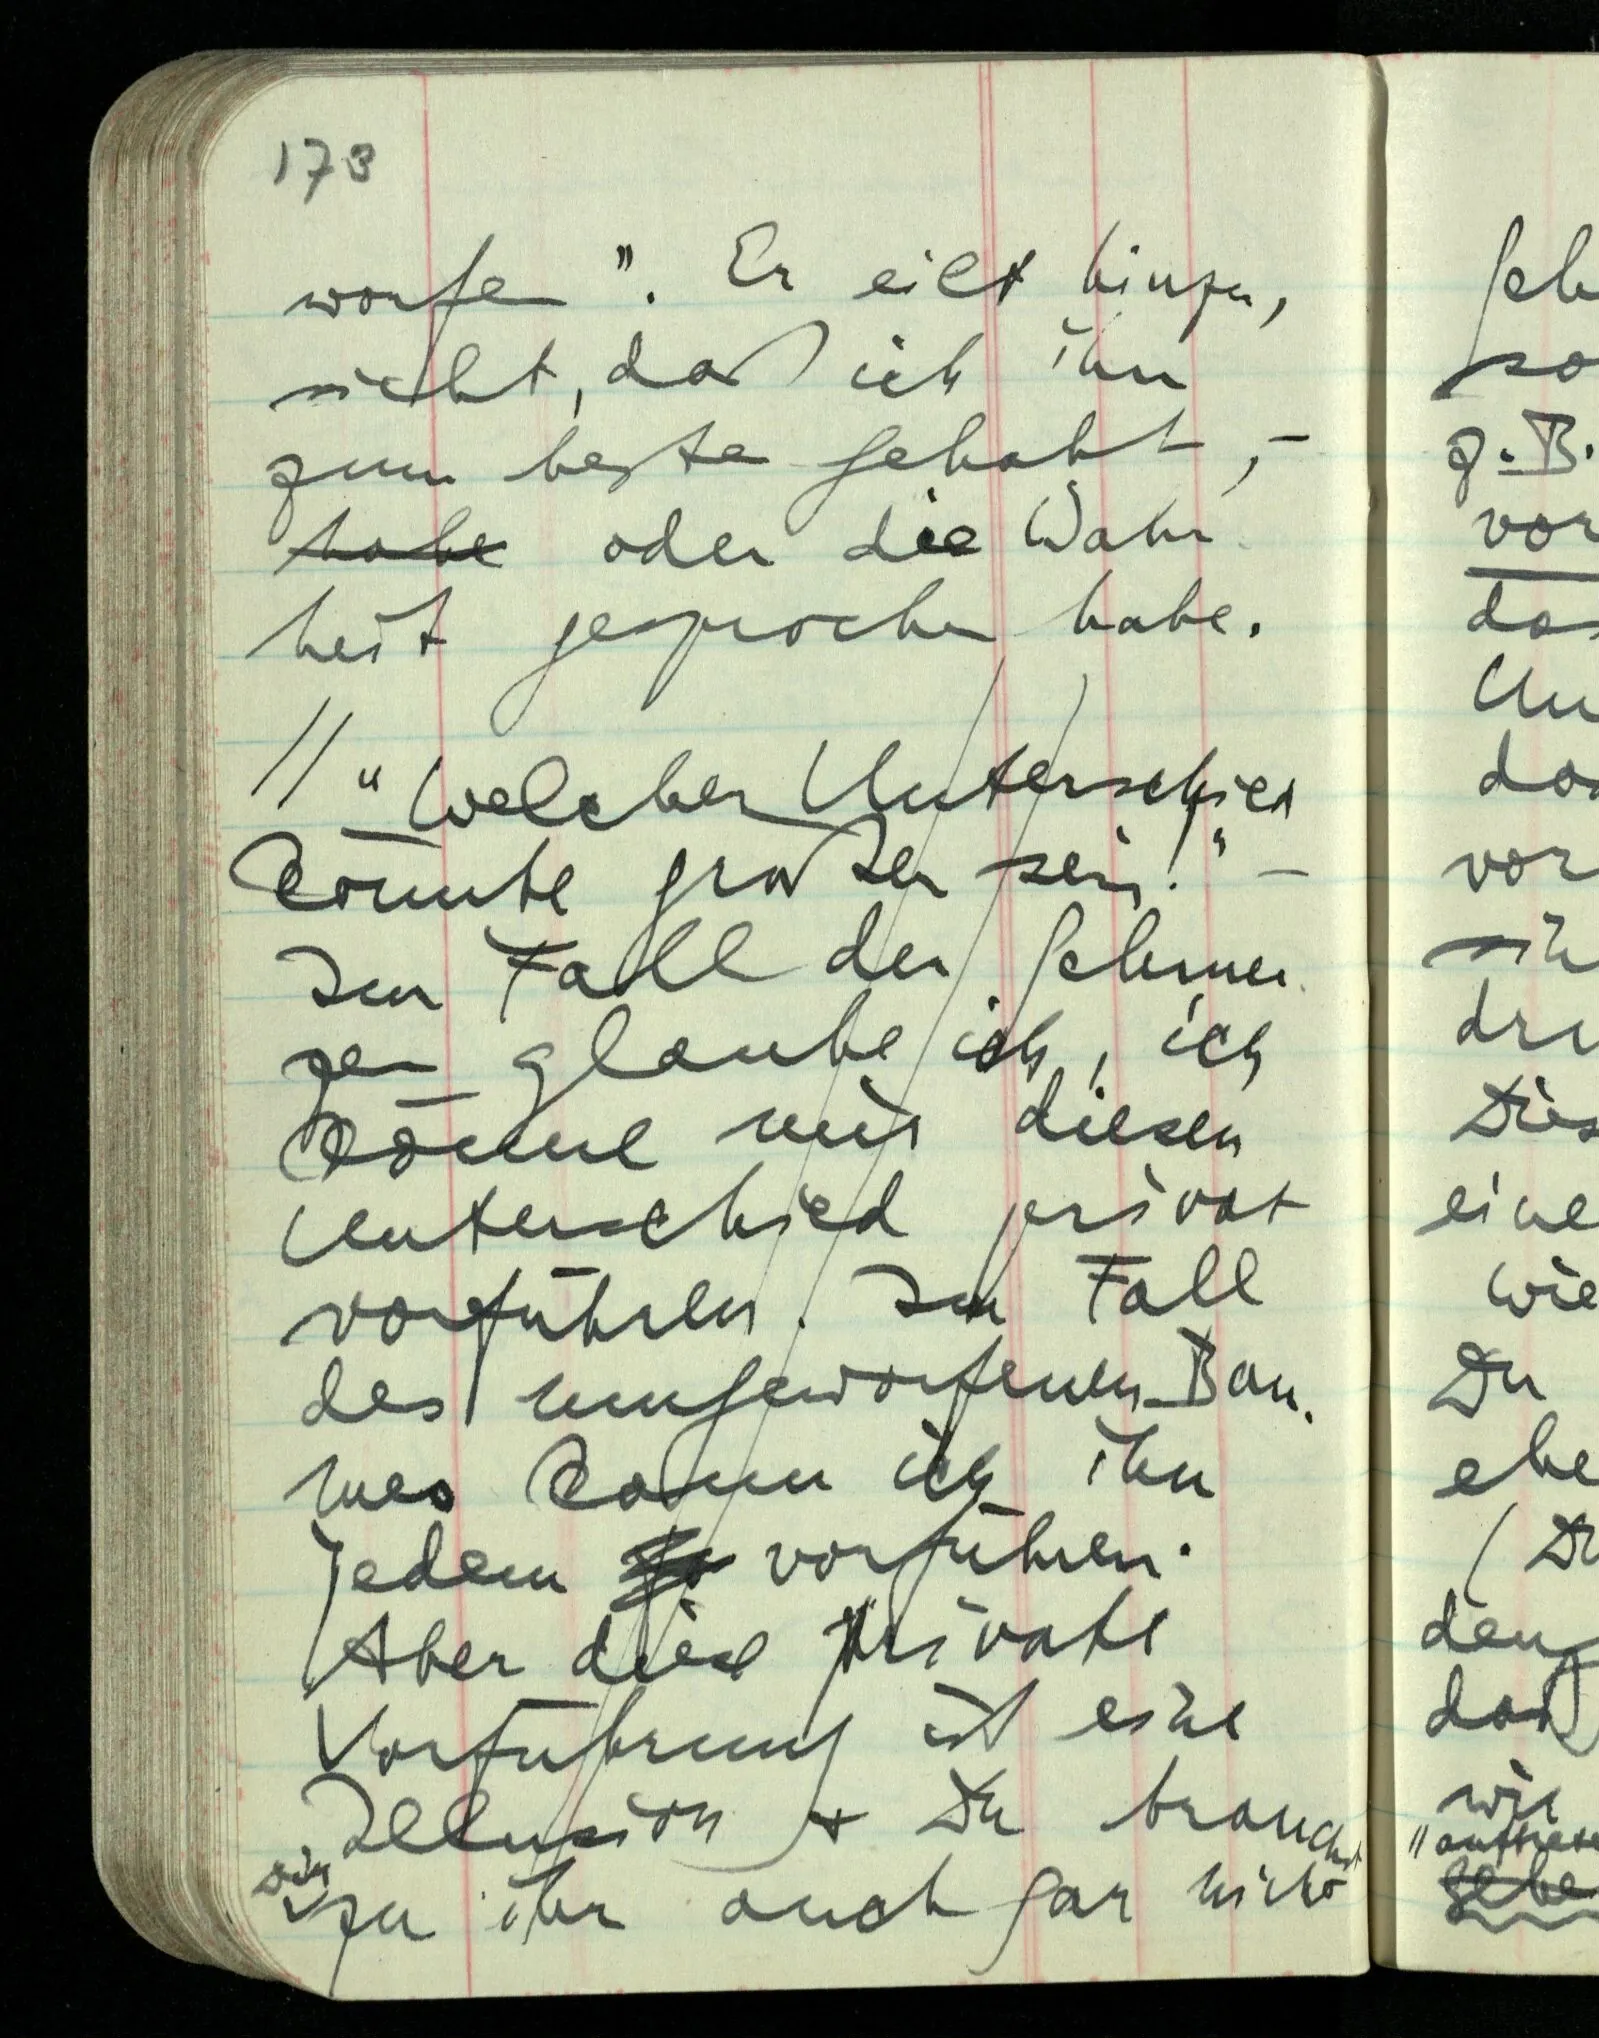 173
worfen". Er eilt hinzu,
sieht, daß ich ihn
zum besten gehabt, –
habe oder die Wahr-
heit gesprochen habe.
// "Welcher Unterschied
könnte größer sein!" –
Im Fall der Schmer-
zen glaube ich, ich
könne mir diesen
Unterschied privat
vorführen. Im Fall
des umgeworfenen Bau-
mes kann ich ihn
jedem vorführen.
Aber die private
Vorführung ist eine
Illusion + Du brauchst
zu ihr auch gar nichts
so
z.B.
vor
das
Un
das
vor
Dies
eine
wie
Du
ehe
daß
wie